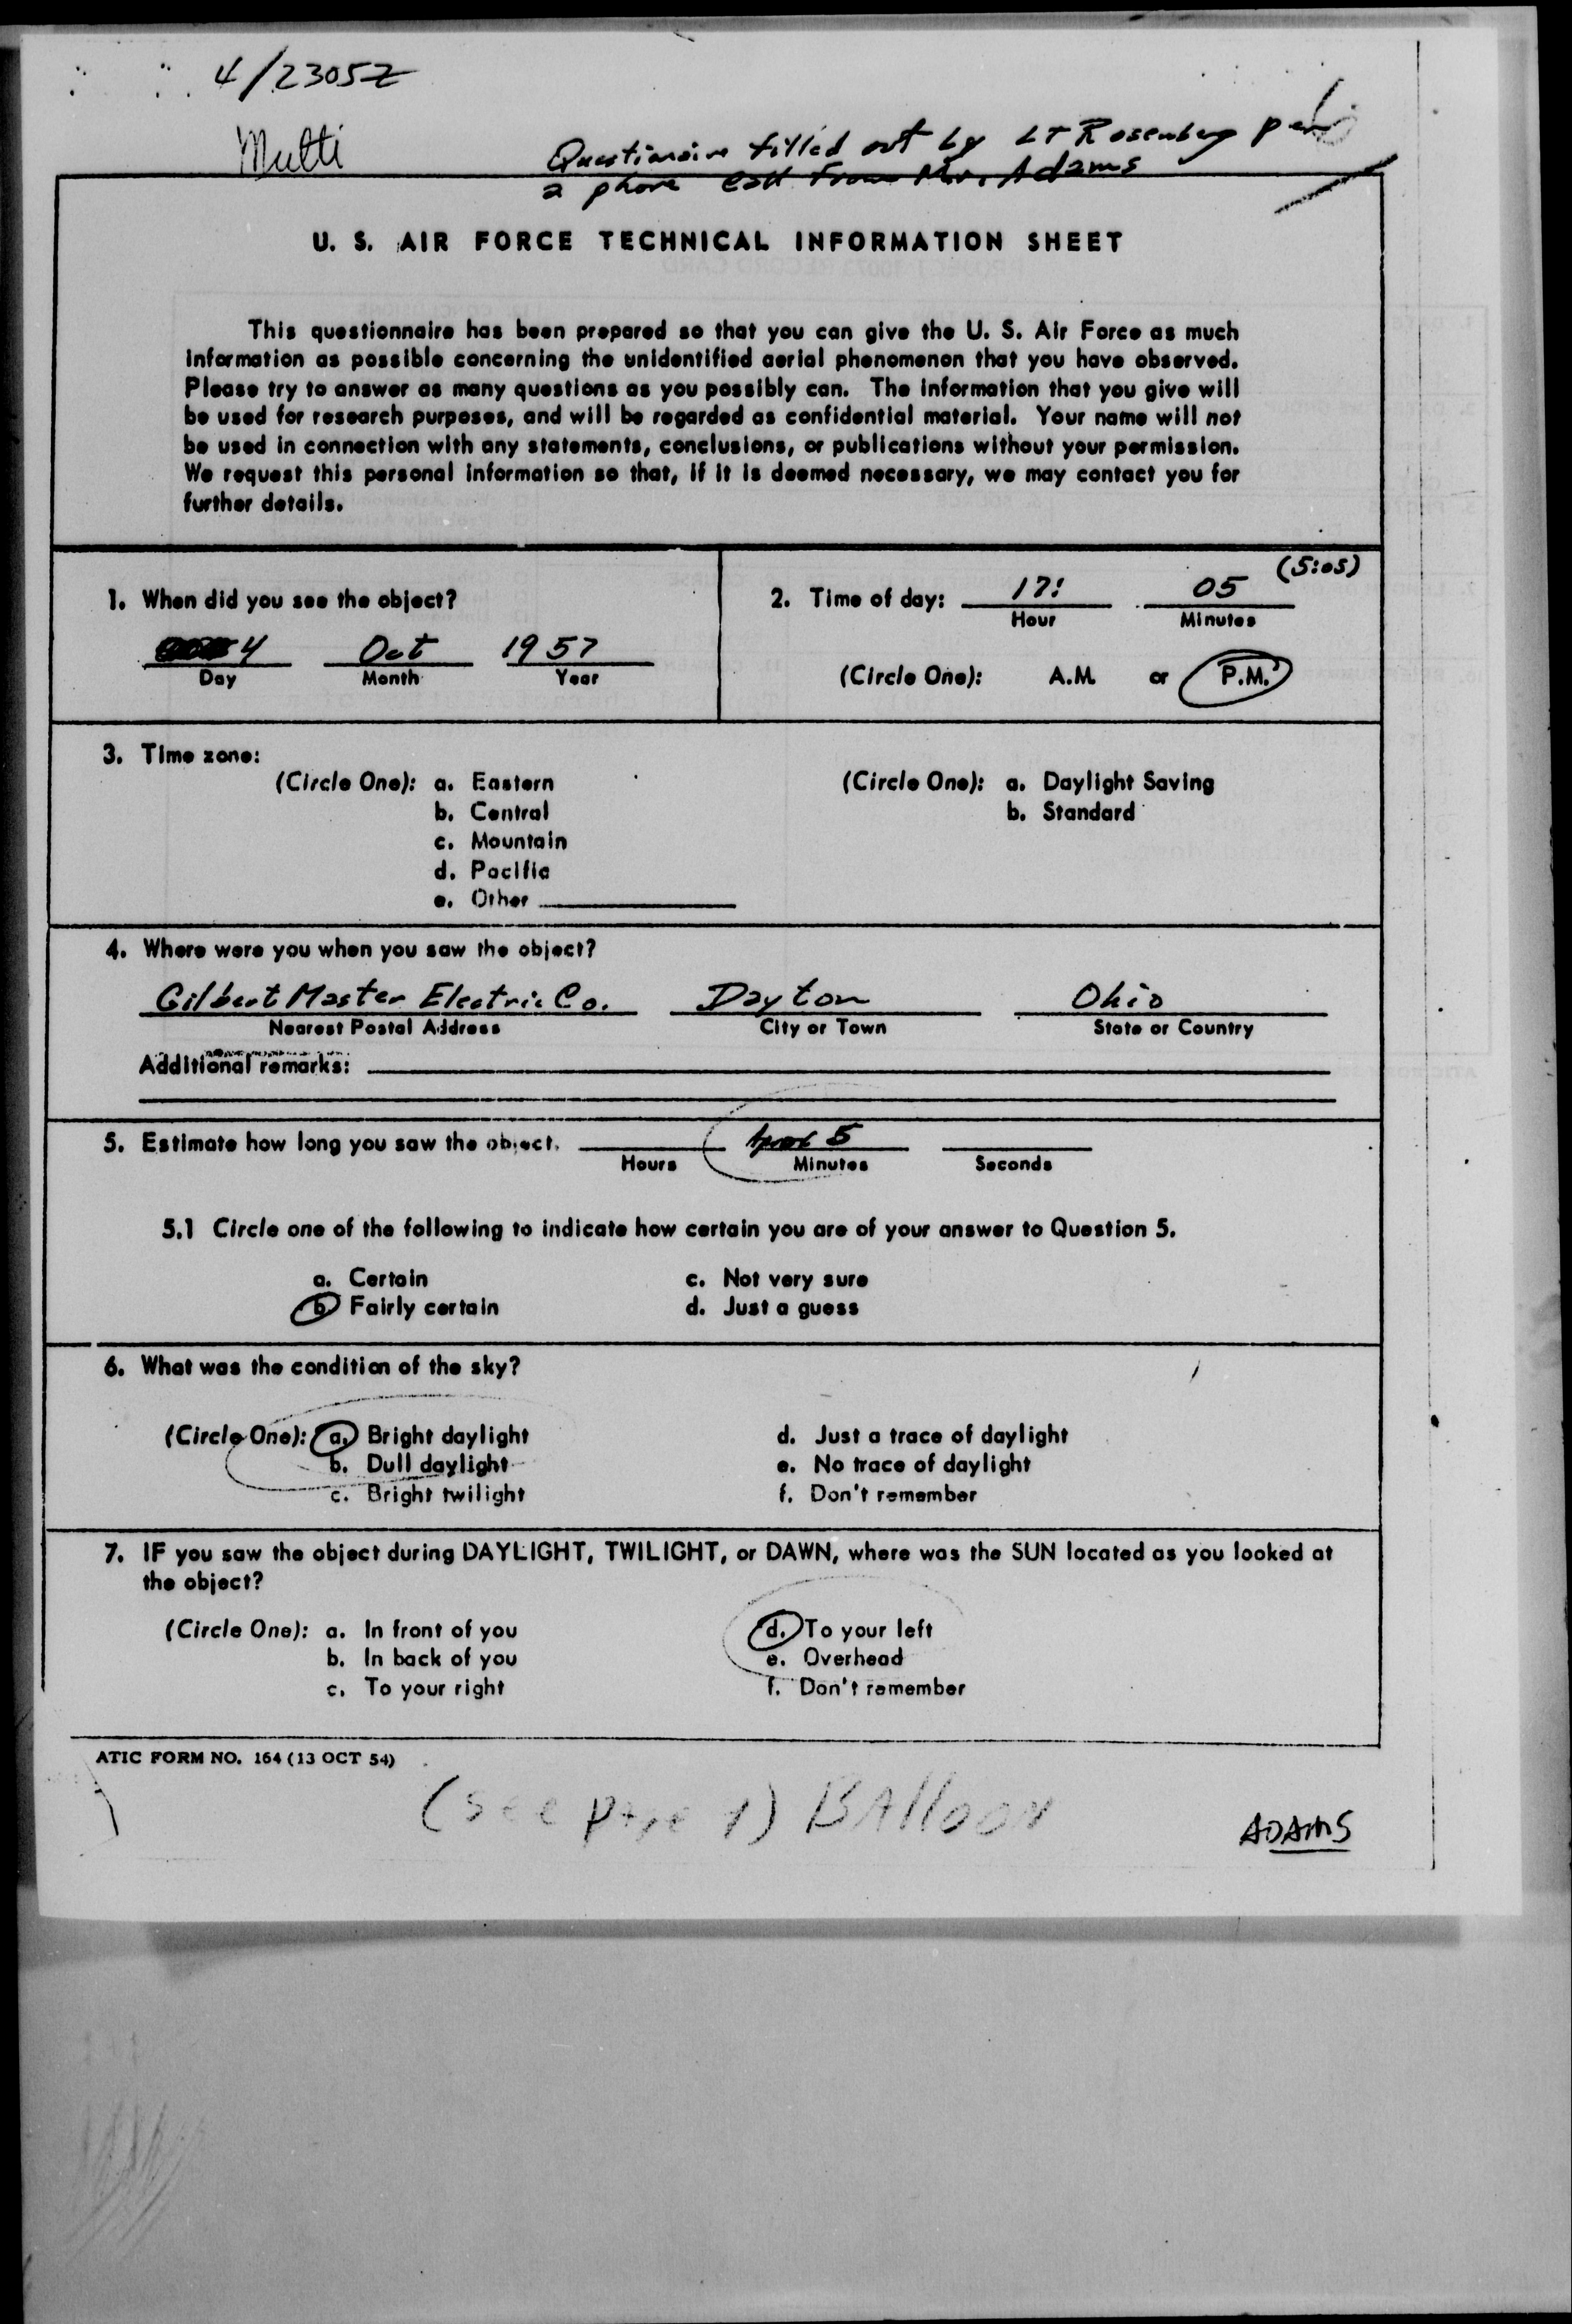 4/2305Z
Multi
Questionaire filled out by LT Rosenberg per
a phone call from Mr. Adams
U. S. AIR FORCE TECHNICAL INFORMATION SHEET
This questionnaire has been prepared so that you can give the U. S. Air Force as much
information as possible concerning the unidentified aerial phenomenon that you have observed.
Please try to answer as many questions as you possibly can. The information that you give will
be used for research purposes, and will be regarded as confidential material. Your name will not
be used in connection with any statements, conclusions, or publications without your permission.
We request this personal information so that, if it is deemed necessary, we may contact you for
further details.
1. When did you see the object?
4 Oct 1957
Day Month Year
2. Time of day: 17: 05 (5:05)
Hour Minutes
(Circle One): A.M. or P.M.
3. Time zone:
(Circle One): a. Eastern
b. Central
c. Mountain
d. Pacific
e. Other
(Circle One): a. Daylight Saving
b. Standard
4. Where were you when you saw the object?
Gilbert Master Electric Co. Dayton Ohio
Nearest Postal Address City or Town State or Country
Additional remarks:
5. Estimate how long you saw the object. 5
Hours Minutes Seconds
5.1 Circle one of the following to indicate how certain you are of your answer to Question 5.
a. Certain c. Not very sure
b Fairly certain d. Just a guess
6. What was the condition of the sky?
(Circle One): a. Bright daylight d. Just a trace of daylight
b. Dull daylight e. No trace of daylight
c. Bright twilight f. Don't remember
7. IF you saw the object during DAYLIGHT, TWILIGHT, or DAWN, where was the SUN located as you looked at
the object?
(Circle One): a. In front of you d. To your left
b. In back of you e. Overhead
c. To your right f. Don't remember
ATIC FORM NO. 164 (13 OCT 54)
(See page 1) BAlloon
ADAMS